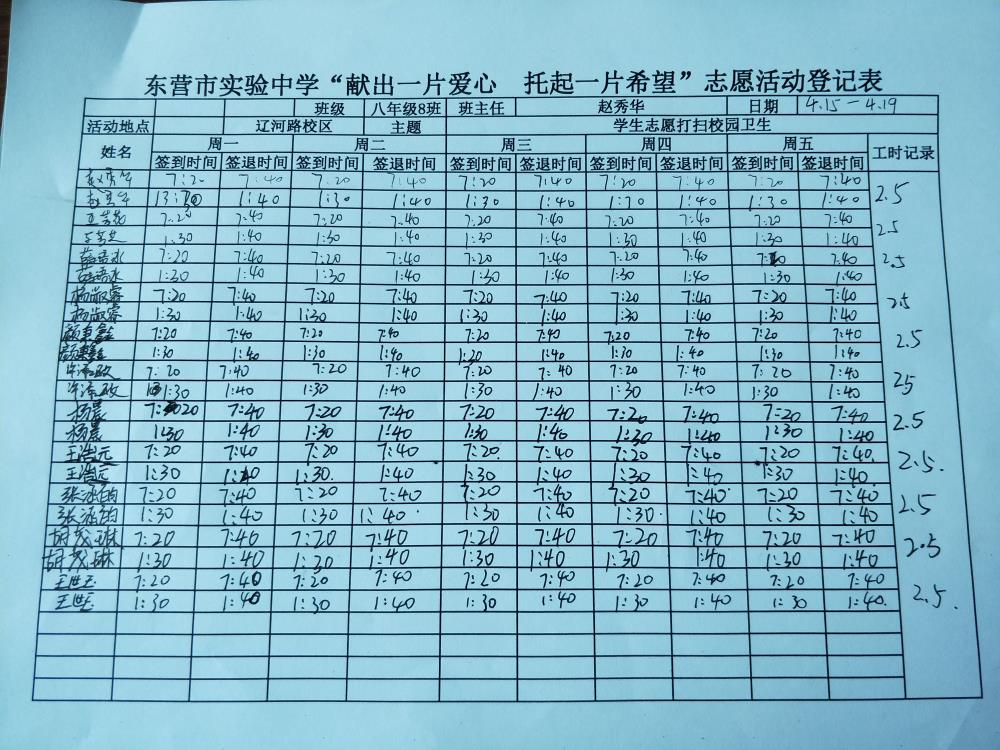 东营市实验中学“献出一片爱心 托起一片希望”志愿活动登记表
班级 八年级8班 班主任 赵秀华 日期 4.15-4.19
活动地点 辽河路校区 主题 学生志愿打扫校园卫生
姓名 周一 周二 周三 周四 周五 工时记录
签到时间 签退时间 签到时间 签退时间 签到时间 签退时间 签到时间 签退时间 签到时间 签退时间
7:20 7:40 7:20 7:40 7:20 7:40 7:20 7:40 7:20 7:40
1:40 1:30 1:40 1:30 1:40 1:30 1:40 1:30 1:40 2.5
7:20 7:40 7:20 7:40 7:20 7:40 7:20 7:40 7:20 7:40
1:30 1:40 1:30 1:40 1:30 1:40 1:30 1:40 1:30 1:40 2.5
7:20 7:40 7:20 7:40 7:20 7:40 7:20 7:40 7:20 7:40
1:30 1:40 1:30 1:40 1:30 1:40 1:30 1:40 1:30 1:40 2.5
7:20 7:40 7:20 7:40 7:20 7:40 7:20 7:40 7:20 7:40
1:30 1:40 1:30 1:40 1:30 1:40 1:30 1:40 1:30 1:40 2.5
7:20 7:40 7:20 7:40 7:20 7:40 7:20 7:40 7:20 7:40
1:30 1:40 1:30 1:40 1:20 1:40 1:30 1:40 1:30 1:40 2.5
7:20 7:40 7:20 7:40 7:20 7:40 7:20 7:40 7:20 7:40
1:30 1:40 1:30 1:40 1:30 1:40 1:30 1:40 1:30 1:40 25
杨晨 7:20 7:40 7:20 7:40 7:20 7:40 7:20 7:40 7:20 7:40
杨晨 1:30 1:40 1:30 1:40 1:30 1:40 1:30 1:40 1:30 1:40 2.5
王浩远 7:20 7:40 7:20 7:40 7:20 7:40 7:20 7:40 7:20 7:40.
王浩远 1:30 1:40 1:30. 1:40 1:30 1:40 1:30 1:40 1:30 1:40. 2.5.
7:20 7:40 7:20 7:40 7:20 7:40 7:20 7:40 7:20 7:40
1:30 1:40 1:30 1:40 1:30 1:40 1:30. 1:40 1:30 1:40 2.5
胡茂琳 7:20 7:40 7:20 7:40 7:20 7:40 7:20 7:40 7:20 7:40
胡茂琳 1:30 1:40 1:30 1:40 1:30 1:40 1:30 1:40 1:30 1:40 2.5
王世玉 7:20 7:40 7:20 7:40 7:20 7:40 7:20 7:40 7:20 7:40
1:30 1:40 1:30 1:40 1:30 1:40 1:30 1:40 1:30 1:40. 2.5.